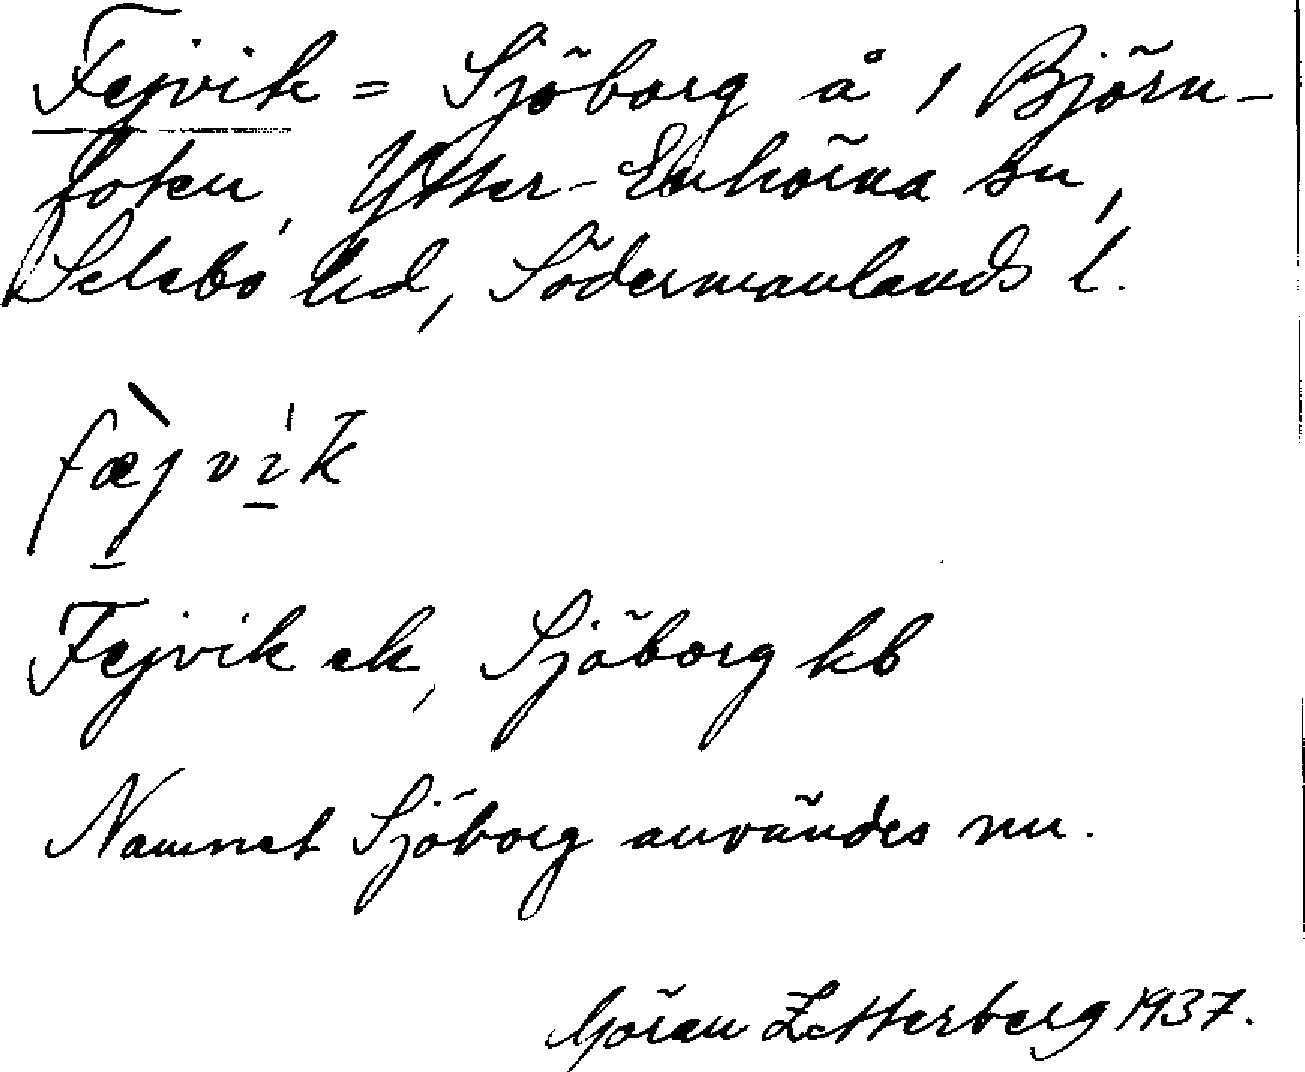 Fejvik = Sjöborg å 1 Björn-
foten, Ytter-Enhörna sn,
Selebo hd, Södermanlands l.
fæ̀jvi̱k
Fejvik ek, Sjöborg kb
Namnet Sjöborg användes nu.
Göran Zetterberg 1937.